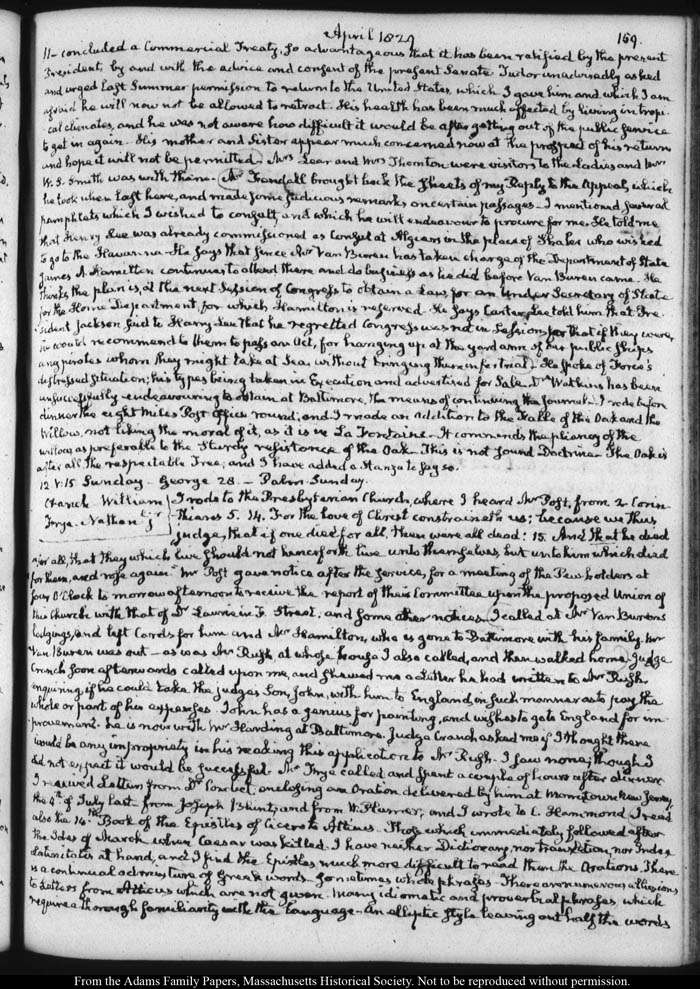 April 1829
159.
11- concluded a Commercial Treaty, so advantageous that it has been ratified by the present
President, by and with the advice and consent of the present Senate. Tudor unadvisedly asked
and urged last Summer permission to return to the United States, which I gave him and which I am
afraid he will now not be allowed to retract. His health has been much affected by living in tropi-
cal climates, and he was not aware how difficult it would be after getting out of the public service
to get in again. His mother and Sister appear much concerned now at the prospect of his return
and hope it will not be permitted. Mrs Lear and Mrs Thornton were visitors to the Ladies and Mrs
W. S. Smith was with them. Mr Trendall brought back the sheets of my Reply to the Appeal, which
he took when last here, and made some judicious remarks on certain passages. I mentioned several
pamphlets which I wished to consult, and which he will endeavour to procure for me. He told me
that Henry Lee was already commissioned as Consul at Algiers in the place of Shaler who wished
to go to the Havanna. He says that since Mr Van Buren has taken charge of the Department of State
James A. Hamilton continues to attend there and do business as he did before Van Buren came. He
thinks the plan is, at the next Session of Congress to obtain a Law, for an Under Secretary of State
for the Home Department, for which Hamilton is reserved. He says Carter Lee told him that Pre-
sident Jackson said to Harry Lee that he regretted Congress was not in Session, for that if they were,
he would recommend to them to pass an Act, for hanging up at the yard arm of our public Ships
any pirates whom they might take at Sea, without bringing them in for trial. He spoke of Force's
distressed situation; his types being taken in Execution and advertised for Sale. Dr Watkins has been
unsuccessfully endeavouring to obtain at Baltimore, the means of continuing the Journal. I rode before
dinner the eight Miles Post office round, and I made an addition to the Fable of the Oak and the
Willow, not liking the moral of it, as it is in La Fontaine. It commends the pliancy of the
willow as preferable to the sturdy resistance of the Oak. This is not sound Doctrine. The Oak is
after all the respectable Tree, and I have added a Stanza to say so.
12. V:15 Sunday. George 28. - Palm Sunday.
Cranch William
Frye. Nathanl jr
I rode to the Presbyterian Church, where I heard Mr Post, from 2 Corin-
thians 5. 14. For the love of Christ constraineth us; because we thus
judge, that if one died for all, then were all dead: 15. And that he died
for all, that they which live should not henceforth live unto themselves, but unto him which died
for them, and rose again. Mr Post gave notice after the service, for a meeting of the Pew-holders at
four O'Clock to morrow afternoon to receive the report of their Committee upon the proposed Union of
this Church with that of Dr Laurie in F. Street. and some other notices. I called at Mr Van Buren's
lodgings, and left Cards for him and Mr Hamilton, who is gone to Baltimore with his family. Mr
Van Buren was out - as was Mr Rush, at whose house I also called, and then walked home. Judge
Cranch soon afterwards called upon me, and shewed me a Letter he had written to Mr Rush
enquiring if he could take the Judge's Son, John, with him to England, in such manner as to pay the
whole or part of his expenses. John has a genius for painting, and wishes to go to England for im-
provement. he is now with Mr Harding at Baltimore. Judge Cranch asked me if I thought there
would be any impropriety in his making this application to Mr Rush. I saw none, though I
did not expect it would be successful. Mr Frye called and spent a couple of hours after dinner.
I received Letters from Dr Condict, enclosing an Oration delivered by him at Morristown New Jersey,
the 4th of July last from Joseph Blunt, and from W. Plumer, and I wrote to C. Hammond. I read
also the 14th Book of the Epistles of Cicero to Atticus. Those which immediately followed after
the Ides of March when Caesar was killed. I have neither Dictionary, nor translation, nor Index
Latinitatis at hand, and I find the Epistles much more difficult to read than the Orations. There
is a continual admixture of Greek words - sometimes whole phrases. There are numerous allusions
to Letters from Atticus which are not given. many idiomatic and proverbial phrases, which
require a thorough familiarity with the language. An elliptic style leaving out half the words
From the Adams Family Papers, Massachusetts Historical Society. Not to be reproduced without permission.